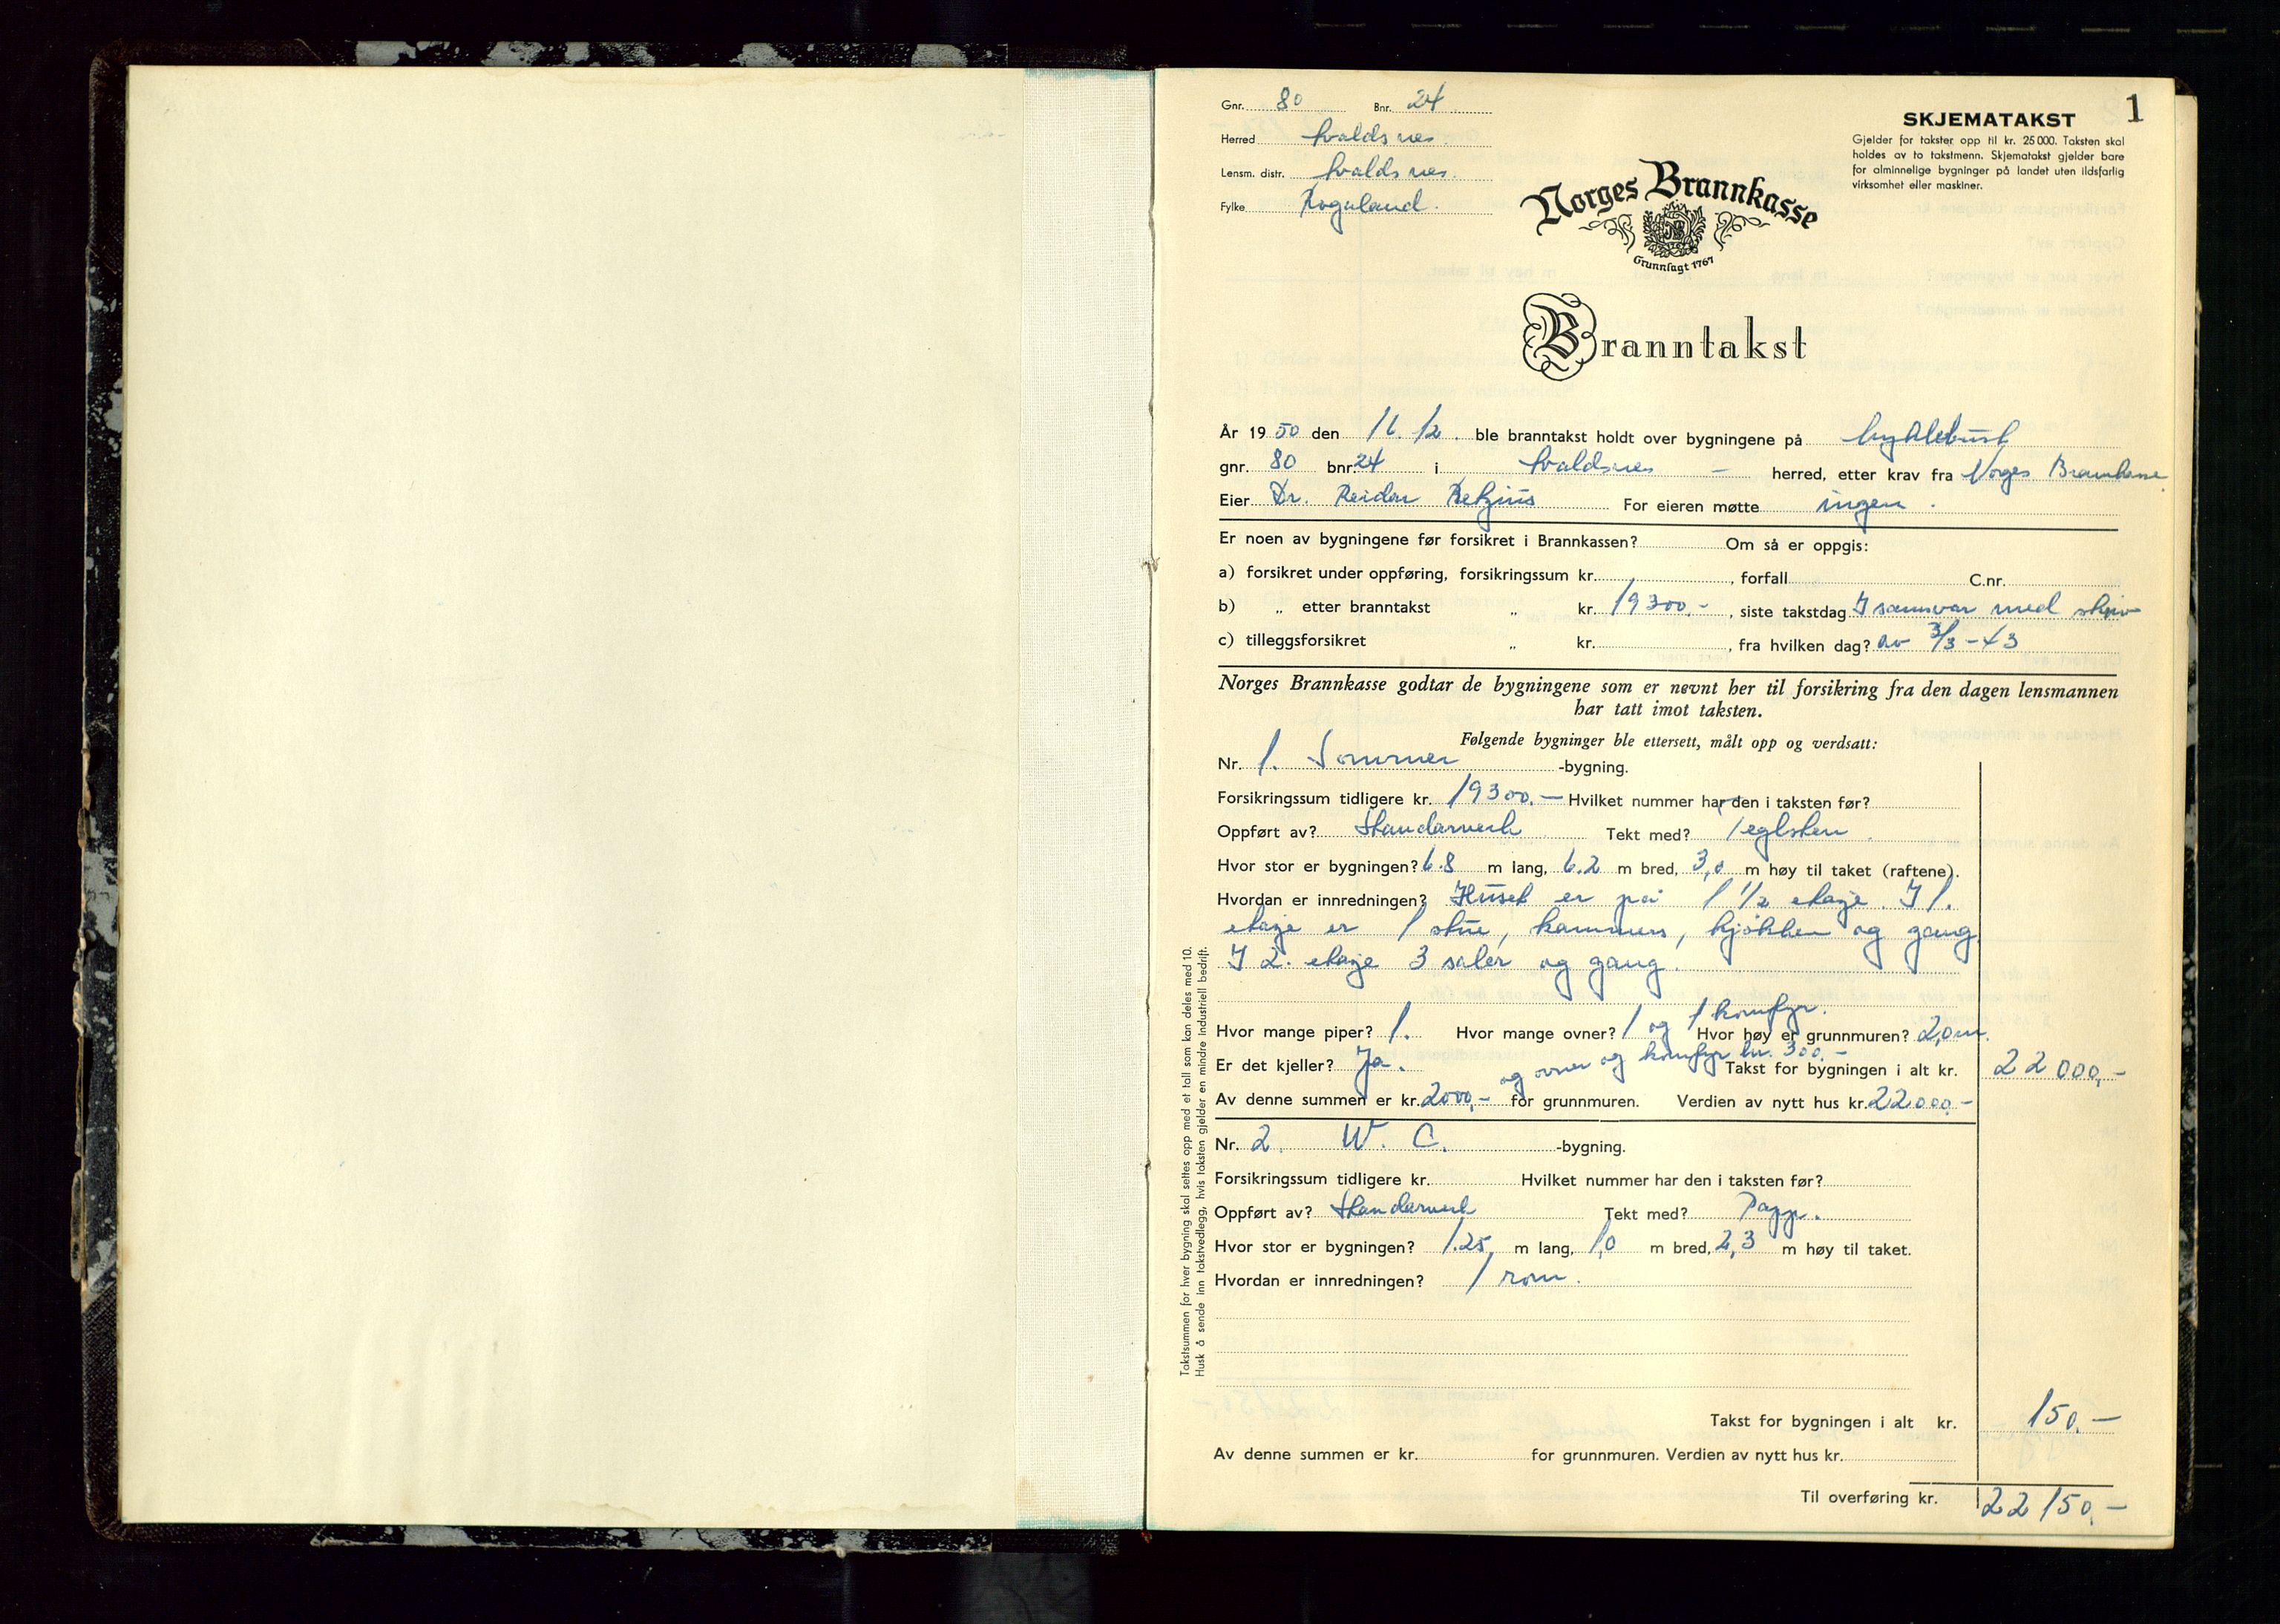 1
Gnr. 80 Bnr. 24
Herred Avaldsnes.
Lensm. distr. Avaldsnes.
Fylke Rogaland.
SKJEMATAKST
Gjelder for takster opp til kr. 25 000. Taksten skal
holdes av to takstmenn. Skjematakst gjelder bare
for alminnelige bygninger på landet uten ildsfarlig
virksomhet eller maskiner.
Norges Brannkasse
Grunnlagt 1767
Branntakst
År 1950 den 16.12. ble branntakst holdt over bygningene på Myklebust
gnr. 80 bnr 24 i Avaldsnes — herred, etter krav fra Norges Brannkasse.
Eier Dr. Reidar Retzius For eieren møtte ingen.
Er noen av bygningene før forsikret i Brannkassen? Om så er oppgis:
a) forsikret under oppføring, forsikringssum kr. , forfall C.nr.
b) „ etter branntakst „ kr. 19300.- , siste takstdag I samsvar med skriv
c) tilleggsforsikret „ kr. , fra hvilken dag? av 3/3-43
Norges Brannkasse godtar de bygningene som er nevnt her til forsikring fra den dagen lensmannen
har tatt imot taksten.
Følgende bygninger ble ettersett, målt opp og verdsatt:
Nr. 1. Sommer -bygning.
Forsikringssum tidligere kr. 19300.— Hvilket nummer har den i taksten før?
Oppført av? Standarverk Tekt med? Teglsten.
Hvor stor er bygningen? 6.8 m lang, 6.2 m bred, 3,0 m høy til taket (raftene).
Hvordan er innredningen? Huset er på 1 1/2 etasje. I 1.
etasje er 1 stue, kammers, kjøkken og gang
I 2. etasje 3 saler og gang.
Hvor mange piper? 1. Hvor mange ovner? 1 og 1 komfyr. Hvor høy er grunnmuren? 2,0m.
Er det kjeller? Ja. Takst for bygningen i alt kr. 22000,-
og ovner og komfyr kr. 300.-
Av denne summen er kr. 2000,- for grunnmuren. Verdien av nytt hus kr. 22000.-
Nr. 2. W. C. -bygning.
Forsikringssum tidligere kr. Hvilket nummer har den i taksten før?
Oppført av? Standarverk Tekt med? Papp.
Hvor stor er bygningen? 1.25, m lang, 1,0 m bred, 2,3 m høy til taket.
Hvordan er innredningen? 1 rom.
Takst for bygningen i alt kr. 150.—
Av denne summen er kr. for grunnmuren. Verdien av nytt hus kr.
Til overføring kr. 22150,-
Takstsummen for hver bygning skal settes opp med et tall som kan deles med 10.
Husk å sende inn takstvedlegg, hvis taksten gjelder en mindre industriell bedrift.